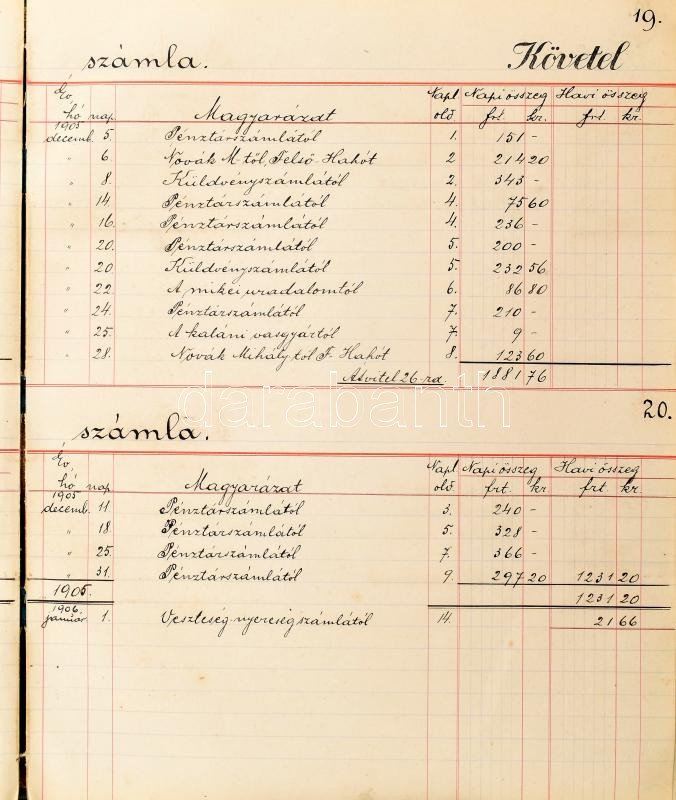 19.
számla. Követel
Év, hó nap. Magyarázat Napl. old. Napi összeg frt. kr. Havi összeg frt. kr.
1905
decemb. 5. Pénztárszámlától 1. 151 -
" 6. Novák M-től, Felső-Hahót 2 214 20
" 8. Küldvényszámlától 2. 343 -
" 14. Pénztárszámlától 4. 75 60
" 16. Pénztárszámlától 4. 236 -
" 20. Pénztárszámlától 5. 200 -
" 20 Küldvényszámlától 5. 232 56
" 22. A mikei uradalomtól 6. 86 80
" 24. Pénztárszámlától 7. 210 -
" 25. A kaláni vasgyártól 7. 9 -
" 28. Novák Mihálytól F. Hahót 8. 123 60
Átvitel 26-ra. 1881 76
darabanth
20.
számla.
Év, hó nap Magyarázat Napl. old. Napi összeg frt. kr. Havi összeg frt. kr.
1905
decemb. 11. Pénztárszámlától 3. 240 -
" 18. Pénztárszámlától 5. 328 -
" 25. Pénztárszámlától 7. 366 -
" 31. Pénztárszámlától 9. 297 20 1231 20
1905. 1231 20
1906.
január 1. Veszteség-nyereség számlától 14. 21 66